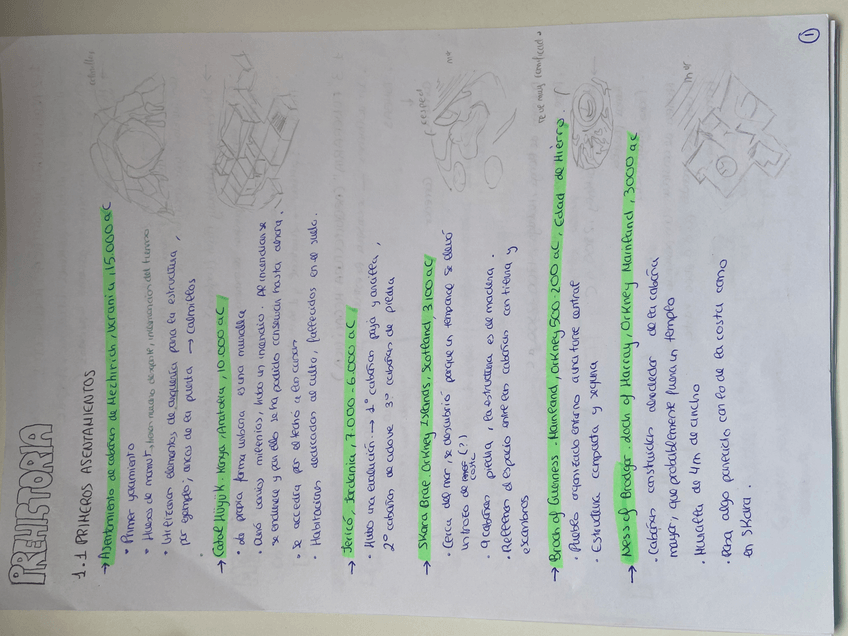 PREHISTORIA
1.1 PRIMEROS ASENTAMIENTOS
→ Asentamiento de cabañas de Mezhirich, Ucrania, 15.000 a.C
• Primer yacimiento
• Huesos de mamut, tienen mucho desgaste, inclemencias del tiempo
• Utilizaron elementos de esqueleto para la estructura,
por ejemplo; arcos de la puerta → colmillos
→ Catal Hüyük. Konya, Anatolia, 10.000 a.C
• La propia forma urbana es una muralla
• Duró varios milenios, hubo un incendio. Al incendiarse
se endurece y por ello se ha podido conservar hasta ahora.
• Se accedía por el techo a las casas
• Habitaciones dedicadas al culto, fallecidos en el suelo.
→ Jericó, Jordania, 7.000 - 6.000 a.C
• Hubo una evolución → 1º cabañas paja y arcilla,
2º cabañas de adobe 3º cabañas de piedra
→ Skara Brae. Orkney Islands, Scotland, 3.100 a.C
• Cerca del mar, se descubrió porque un temporal se llevó
un trozo de (?)
costa
• 9 cabañas piedra, la estructura es de madera.
• Rellenan el espacio entre las cabañas con tierra y
escombros
→ Broch of Gurness. Mainland, Orkney 500 - 200 a.C, Edad de Hierro.
• Pueblo organizado entorno a una torre central
• Estructura compacta y segura
→ Ness of Brodgar. Loch of Harray, Orkney Mainland, 3000 a.C
• Cabañas construidas alrededor de la cabaña
mayor, que probablemente fuera un templo
• Muralla de 4m de ancho
• Pasa algo parecido con lo de la costa como
en Skara.
colmillos
mar
mar
1